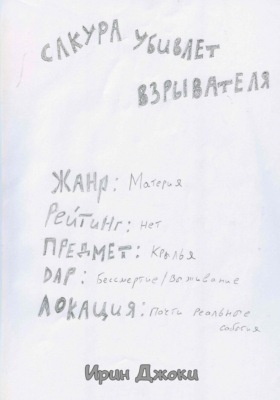 САКУРА УБИВАЕТ
ВЗРЫВАТЕЛЯ
ЖАНР: Материя
РЕЙТИНГ: нет
ПРЕДМЕТ: Крылья
DAP: Бессмертие/Выживание
ЛОКАЦИЯ: Почти реальные
события
Ирин Джоки